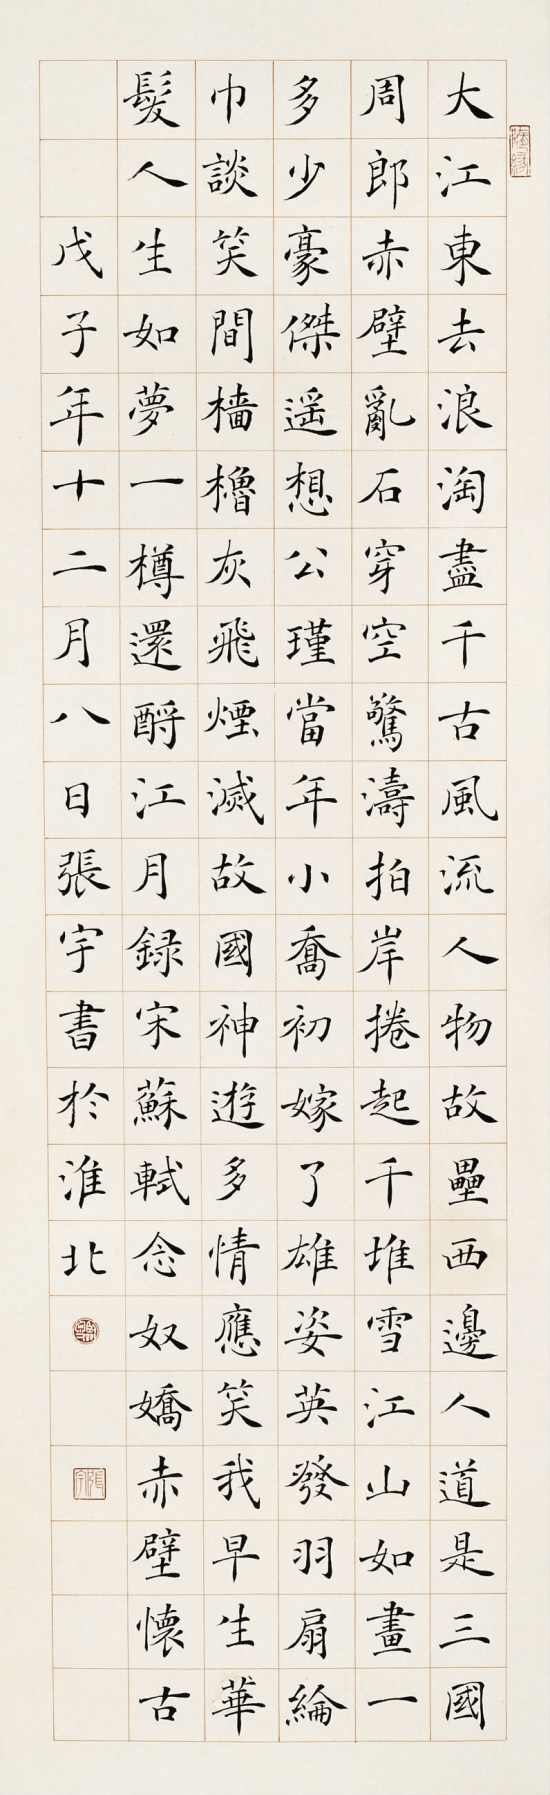 大江東去浪淘盡千古風流人物故壘西邊人道是三國
周郎赤壁亂石穿空驚濤拍岸捲起千堆雪江山如畫一
多少豪傑遥想公瑾當年小喬初嫁了雄姿英發羽扇綸
巾談笑間檣櫓灰飛煙滅故國神遊多情應笑我早生華
髮人生如夢一樽還酹江月録宋蘇軾念奴嬌赤壁懷古
戊子年十二月八日張宇書於淮北